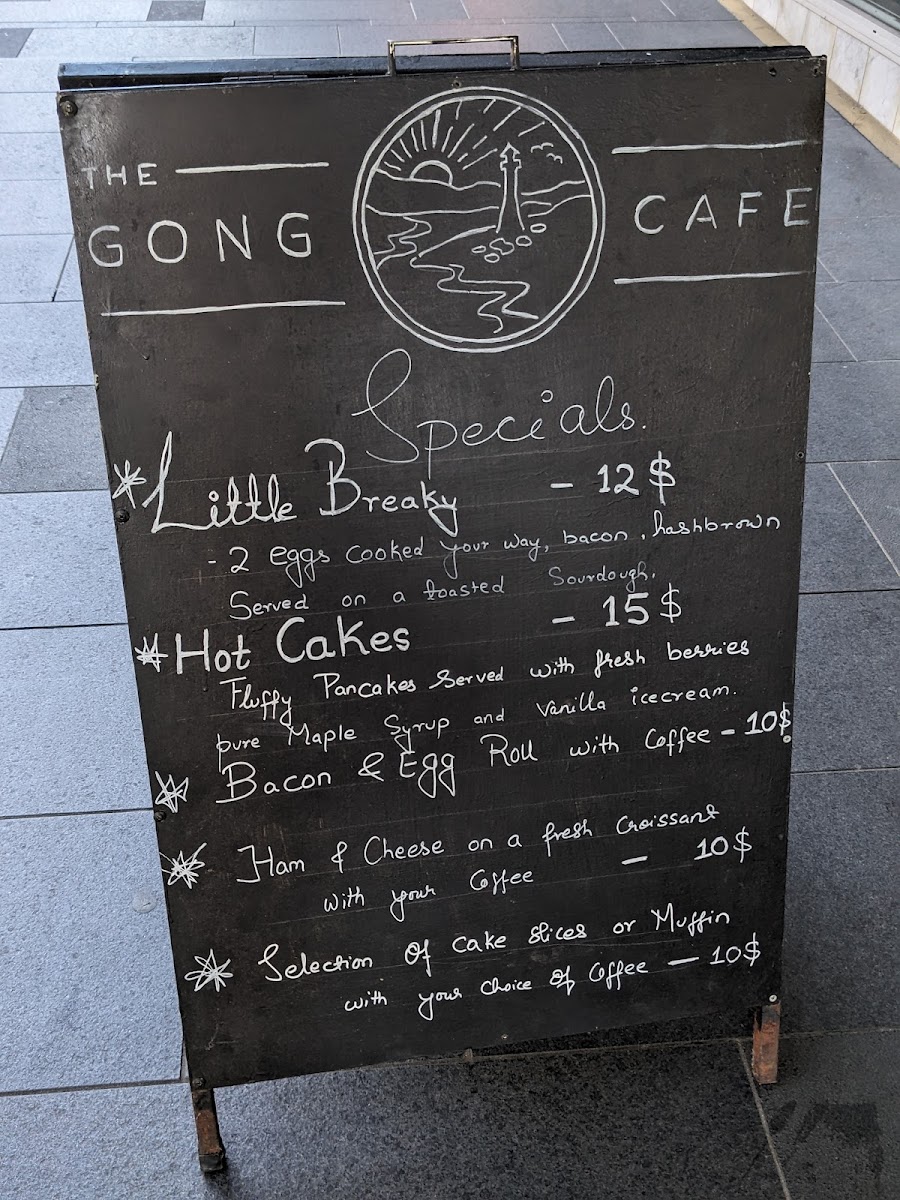 THE
GONG CAFE
Specials.
Little Breaky - 12$
- 2 eggs cooked your way, bacon, hashbrown
Served on a toasted Sourdough.
Hot Cakes - 15$
Fluffy Pancakes Served with fresh berries
pure Maple Syrup and Vanilla icecream.
Bacon & Egg Roll with Coffee - 10$
Ham & Cheese on a fresh Croissant
with your Coffee - 10$
Selection Of Cake slices or Muffin
with your choice of Coffee - 10$